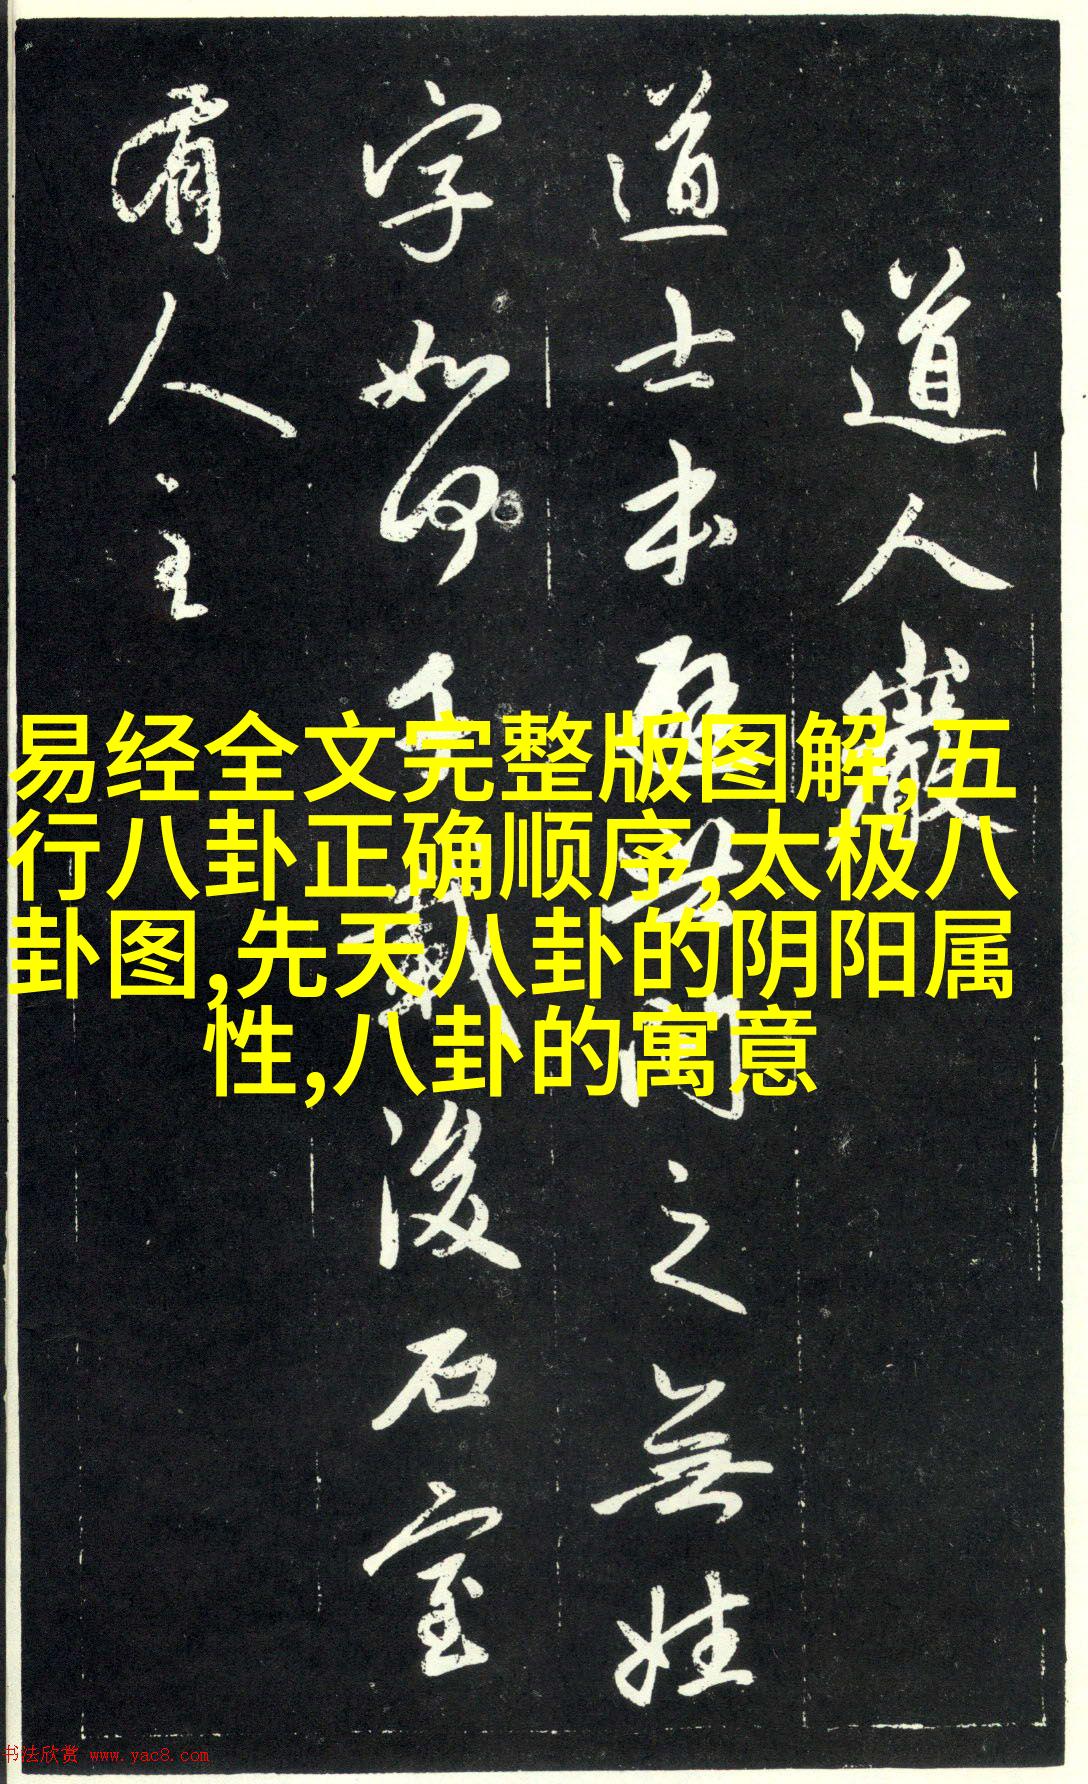 道人巖
道士本避世聞之無姓
字如何千載後石室
有人主
易经全文完整版图解,五
行八卦正确顺序,太极八
卦图,先天八卦的阴阳属
性,八卦的寓意
书法欣赏 www.yac8.com